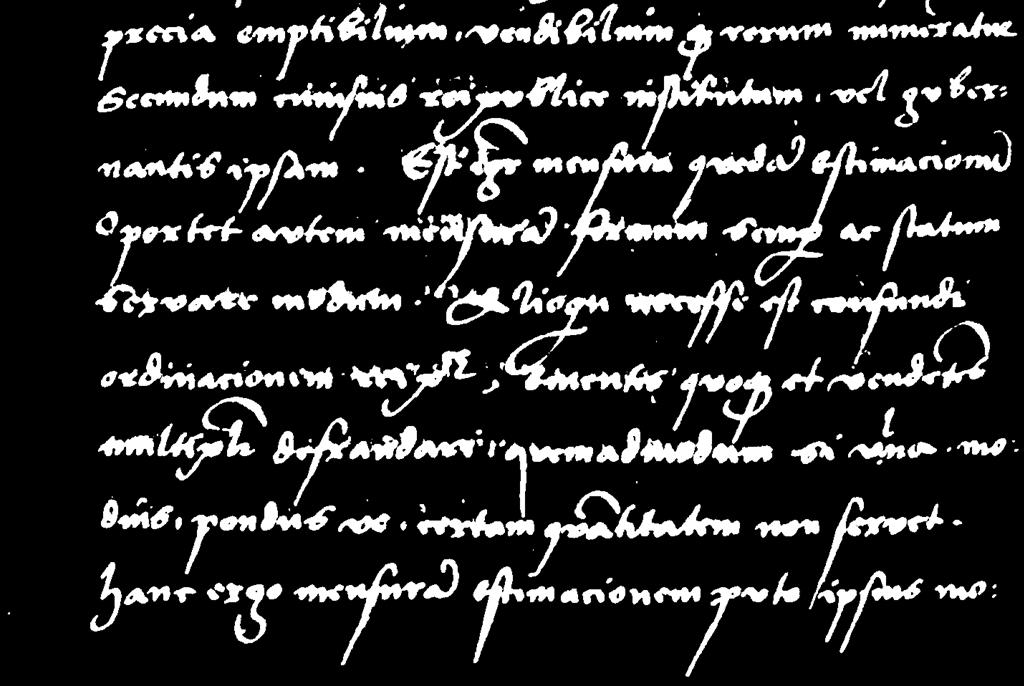 precia emptibilium, vendibilium q̃ rerum numeratur
Secundum cuiusuis reipublice institutum, vel guber=
nantis ipsam. Est ergo mensura quedã estimacionũ
Oportet autem mensurã firmum semp ac statum
servare modum. Alioqu necesse est confundi
ordinacionem reipce, Ementes quoq et vendetes
multiplr defraudari, quemadmodum si vlna. mo:
dius, pondus ve. certam quãtitatem non servet.
Hanc ergo mensurã estimacionem puto ipsius mo: